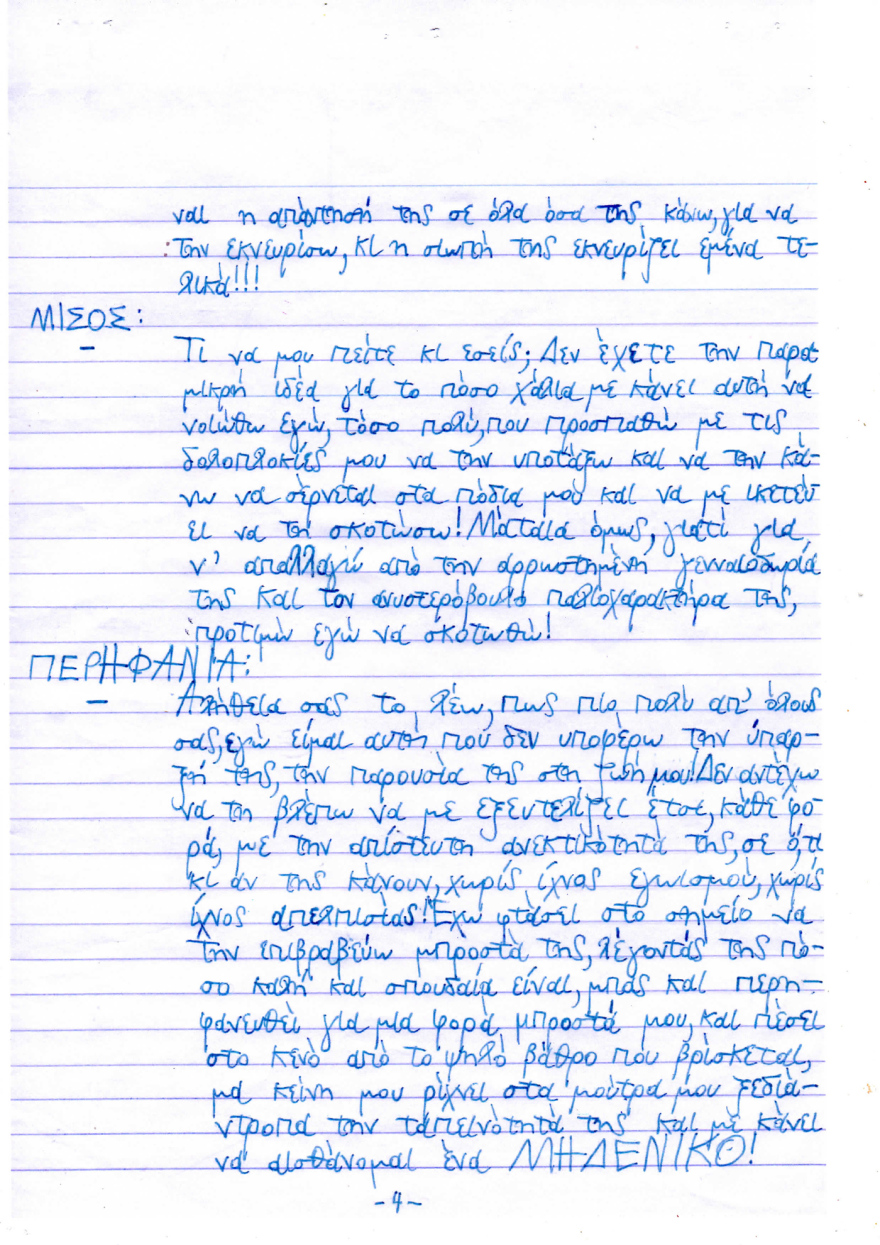 ναι η απάντησή της σε όλα όσα της κάνω, για να
την εκνευρίσω, κι η σιωπή της εκνευρίζει εμένα τε-
λικά!!!
ΜΙΣΟΣ:
Τι να μου πείτε κι εσείς; Δεν έχετε την παρα
μικρή ιδέα για το πόσο χάλια με κάνει αυτή να
νοιώθω εγώ, τόσο πολύ, που προσπαθώ με τις
δολοπλοκίες μου να την υποτάξω και να την κά-
νω να σέρνεται στα πόδια μου και να με ικετεύ
ει να τη σκοτώσω! Μάταια όμως, γιατί για
ν' απαλλαγώ από την αρρωστημένη γενναιοδωρία
της και τον ανυστερόβουλο παλιοχαρακτήρα της,
προτιμώ εγώ να σκοτωθώ!
ΠΕΡΗΦΑΝΙΑ:
Αλήθεια σας το λέω, πως πιο πολύ απ' όλους
σας, εγώ είμαι αυτή που δεν υποφέρω την ύπαρ-
ξή της, την παρουσία της στη ζωή μου! Δεν αντέχω
να τη βλέπω να με εξευτελίζει έτσι, κάθε φο-
ρά, με την απίστευτη ανεκτικότητά της, σε ό,τι
κι αν της κάνουν, χωρίς ίχνος εγωισμού, χωρίς
ίχνος απελπισίας! Έχω φτάσει στο σημείο να
την επιβραβεύω μπροστά της, λέγοντάς της πό-
σο καλή και σπουδαία είναι, μπας και περη-
φανευθεί για μια φορά μπροστά μου, και πέσει
στο κενό από το ψηλό βάθρο που βρίσκεται,
μα κείνη μου ρίχνει στα μούτρα μου ξεδιά-
ντροπα την ταπεινότητά της και με κάνει
να αισθάνομαι ένα ΜΗΔΕΝΙΚΟ!
-4-